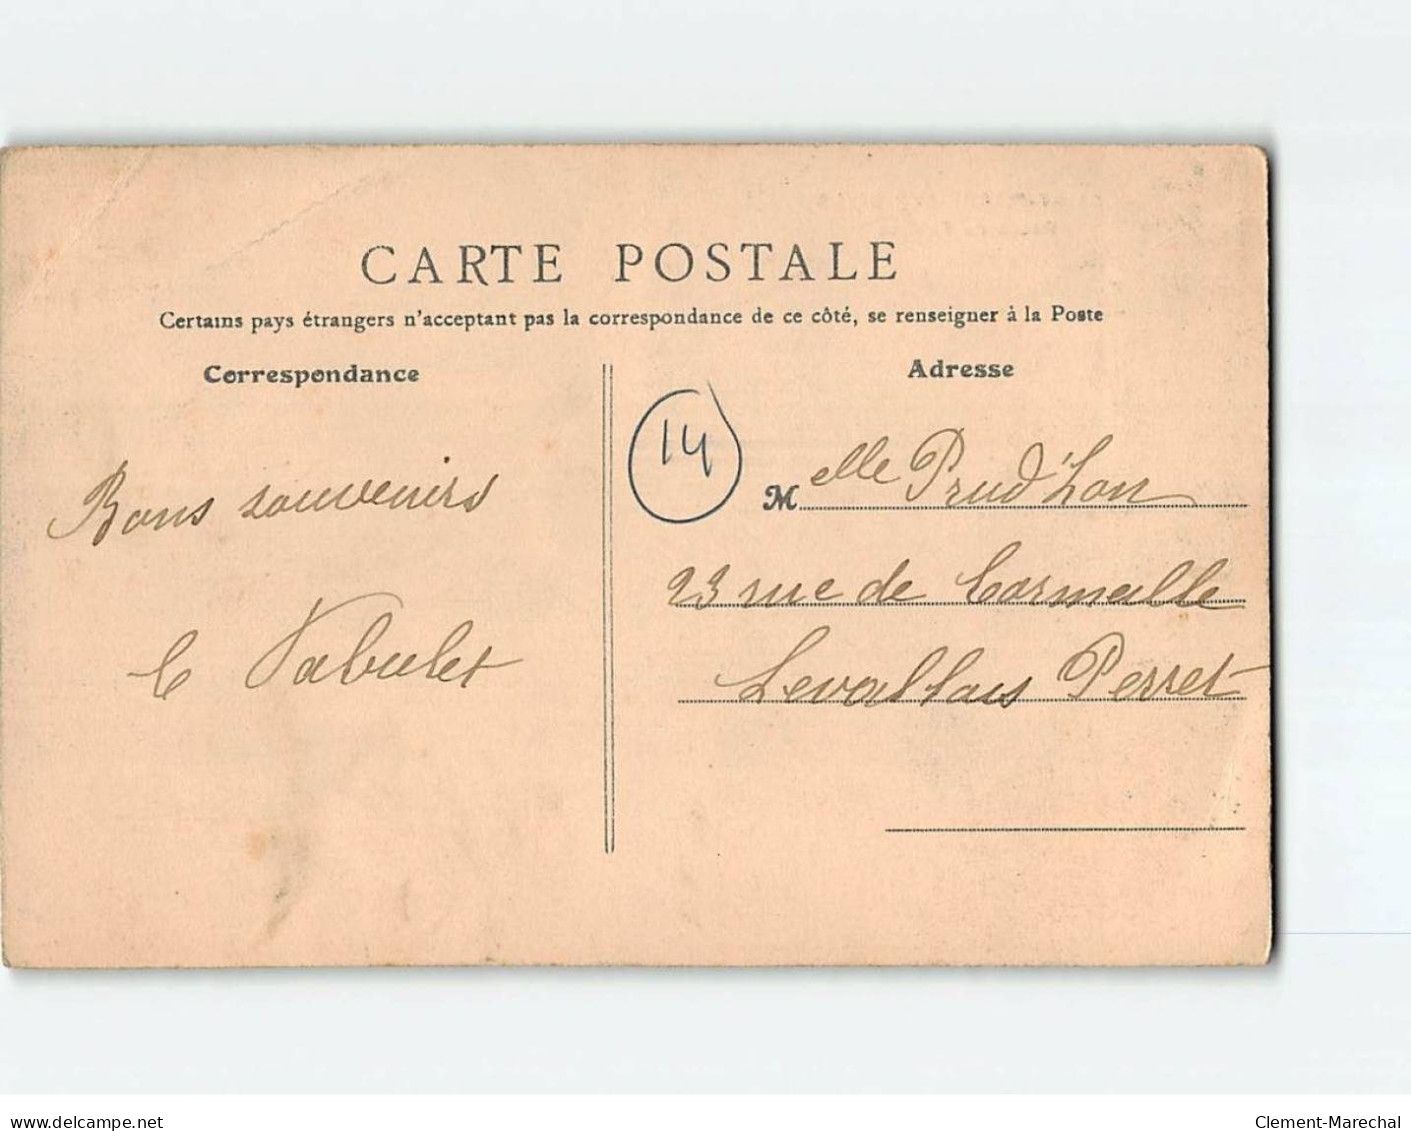 CARTE POSTALE
Certains pays étrangers n'acceptant pas la correspondance de ce côté, se renseigner à la Poste
Correspondance
Adresse
14
Bons souvenirs
Melle Prud'hon
23 rue de Cormeille
Levallois Perret
delcampe.net
Clement-Marechal